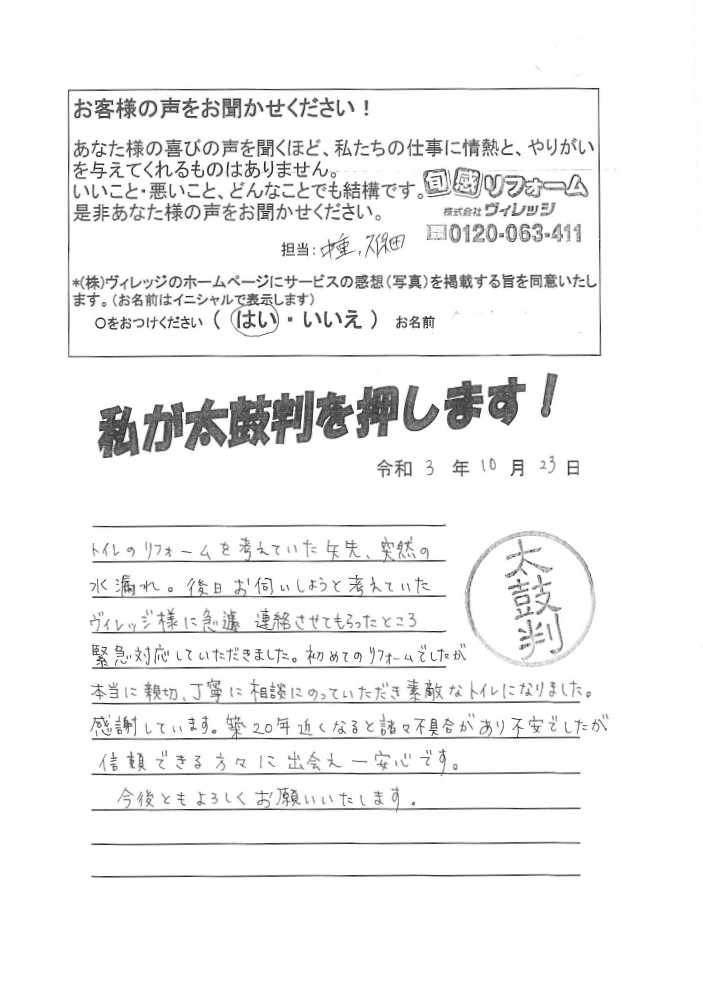 お客様の声をお聞かせください！
あなた様の喜びの声を聞くほど、私たちの仕事に情熱と、やりがい
を与えてくれるものはありません。
いいこと・悪いこと、どんなことでも結構です。
是非あなた様の声をお聞かせください。
旬感リフォーム
株式会社ヴィレッジ
0120-063-411
担当：種、久保田
*(株)ヴィレッジのホームページにサービスの感想（写真）を掲載する旨を同意いたし
ます。（お名前はイニシャルで表示します）
○をおつけください（ はい ・ いいえ ） お名前
私が太鼓判を押します！
令和 3 年 10 月 23 日
トイレのリフォームを考えていた矢先、突然の
水漏れ。後日お伺いしようと考えていた
ヴィレッジ様に急遽 連絡させてもらったところ
緊急対応していただきました。初めてのリフォームでしたが
本当に親切、丁寧に相談にのっていただき素敵なトイレになりました。
感謝しています。築20年近くなると諸々不具合があり不安でしたが
信頼できる方々に出会え一安心です。
今後ともよろしくお願いいたします。
太鼓判